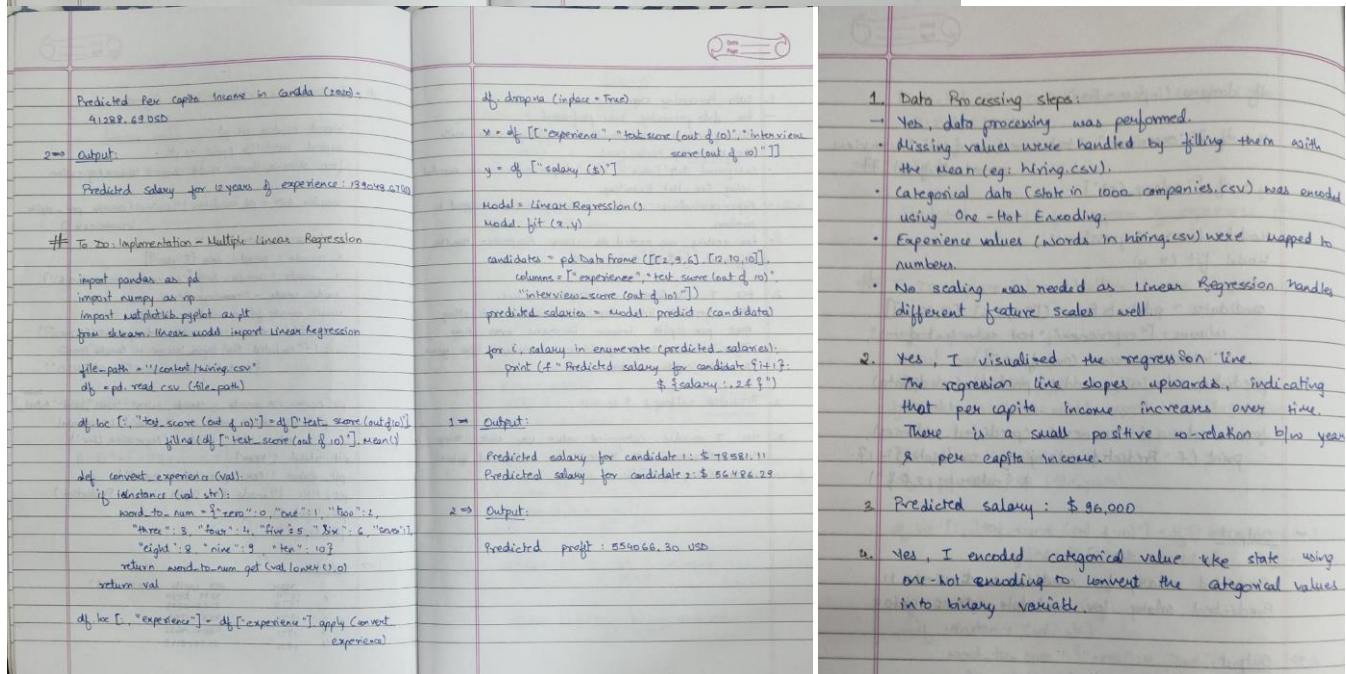 Predicted Per Capita Income in Canada (2020) -
41288.69 USD
2⇒ Output:
Predicted salary for 12 years of experience:
# To Do: Implementation - Multiple Linear Regression
import pandas as pd
import numpy as np
import matplotlib.pyplot as plt
from sklearn.linear_model import Linear Regression
file_path = "/content/hiring.csv"
df = pd.read_csv (file_path)
df.loc [:, "test_score (out of 10)"] = df ["test_score (out of 10)"]
fillna (df ["test_score (out of 10)"].mean())
def convert_experience (val):
if isinstance (val, str):
word_to_num = {"zero": 0, "one": 1, "two": 2,
"three": 3, "four": 4, "five": 5, "six": 6, "seven": 7,
"eight": 8, "nine": 9, "ten": 10}
return word_to_num get (val.lower(), 0)
return val
df.loc [:, "experience"] = df ["experience"].apply (convert_
experience)
Date
Page
df.dropna (inplace = True)
x = df [["experience", "test_score (out of 10)", "interview
score (out of 10)"]]
y = df ["salary ($)"]
Model = Linear Regression()
Model.fit (x, y)
candidates = pd.DataFrame ([[2, 9, 6], [12, 10, 10]],
columns = ["experience", "test_score (out of 10)",
"interview_score (out of 10)"])
predicted_salaries = model.predict (candidates)
for i, salary in enumerate (predicted_salaries):
print (f "Predicted salary for candidate {i+1}:
$ {salary:.2f}")
1⇒ Output:
Predicted salary for candidate 1: $ 78581.11
Predicted salary for candidate 2: $ 56486.29
2⇒ Output:
Predicted profit: 554066.30 USD
1. Data Processing steps:
→ Yes, data processing was performed.
• Missing values were handled by filling them with
the mean (eg: hiring.csv).
• Categorical data (state in 1000 companies.csv) was encoded
using One-Hot Encoding.
• Experience values (words in hiring.csv) were mapped to
numbers.
• No scaling was needed as Linear Regression handles
different feature scales well.
2. Yes, I visualized the regression line.
The regression line slopes upwards, indicating
that per capita income increases over time.
There is a small positive co-relation b/w year
& per capita income.
3. Predicted salary: $ 96,000
4. Yes, I encoded categorical value like state using
one-hot encoding to convert the categorical values
into binary variable.